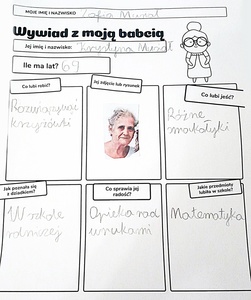 MOJE IMIĘ I NAZWISKO Zofia Murat
Wywiad z moją babcią
Jej imię i nazwisko: Krystyna Murat
Ile ma lat? 69
Co lubi robić?
Jej zdjęcie lub rysunek
Co lubi jeść?
Rozwiązywać
krzyżówki
Różne
smakołyki
Jak poznała się
z dziadkiem?
Co sprawia jej
radość?
Jakie przedmioty
lubiła w szkole?
W szkole
rolniczej
Opieka nad
wnukami
Matematyka